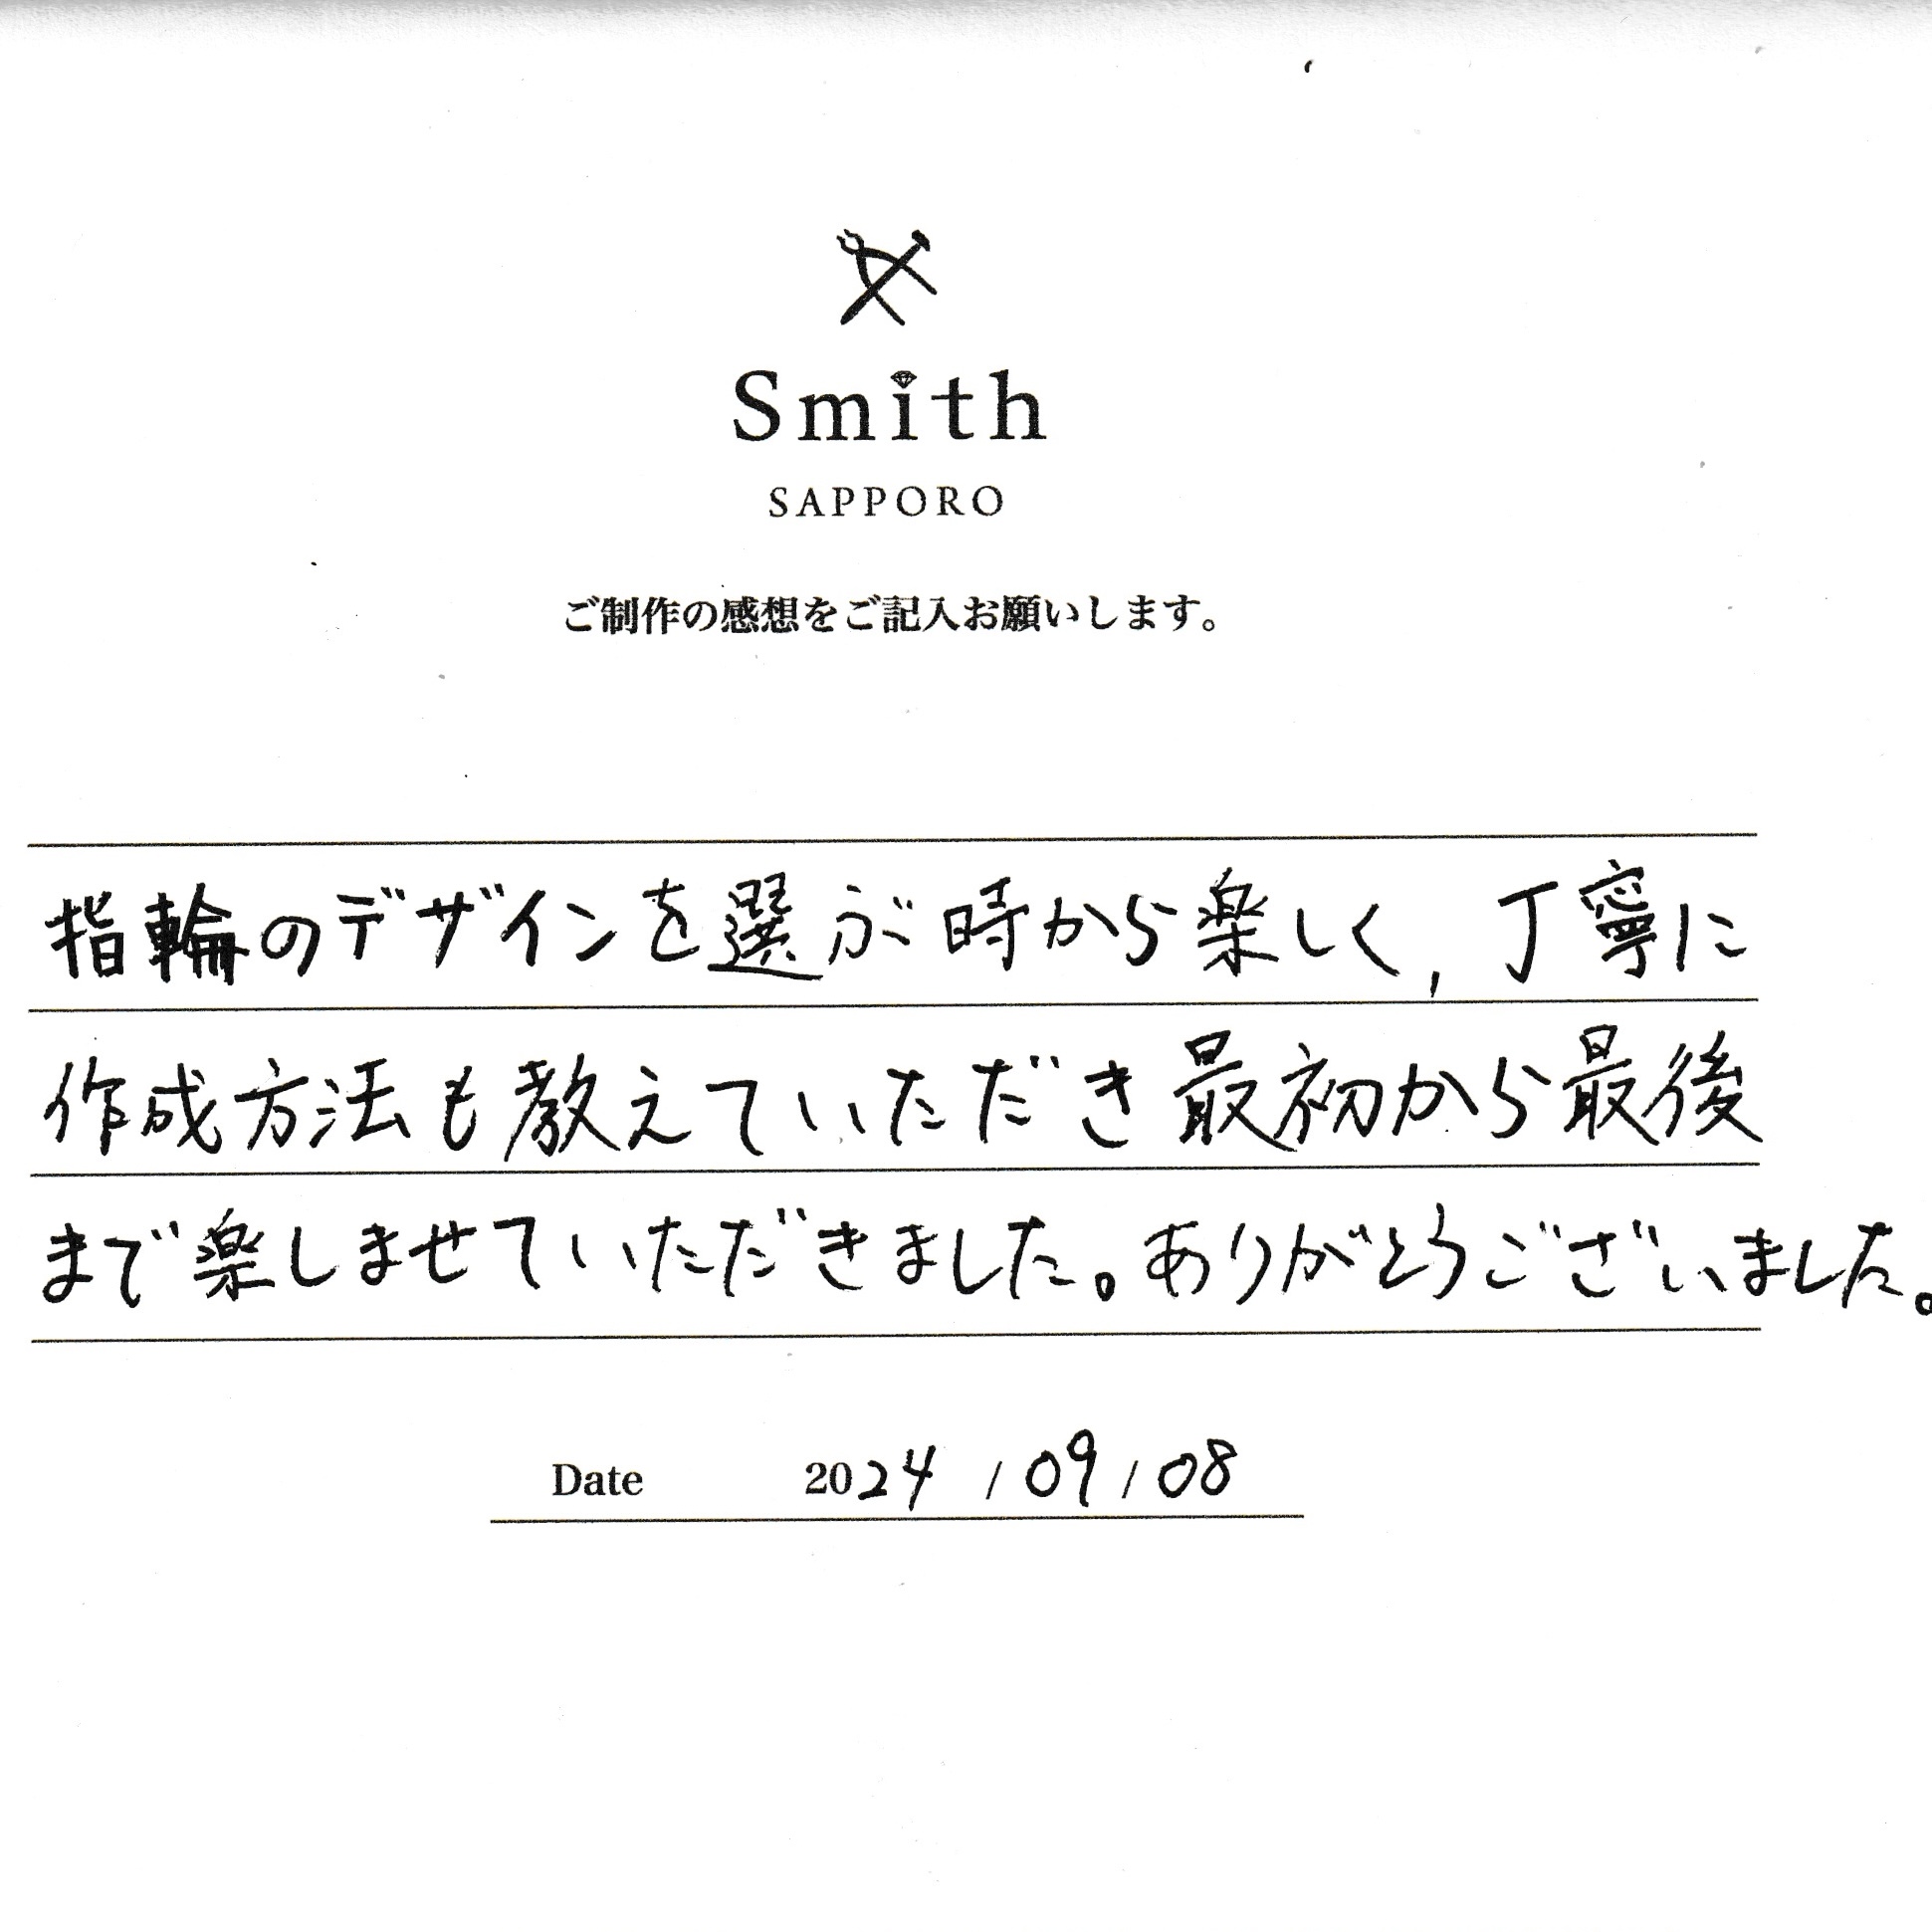 Smith
SAPPORO
ご制作の感想をご記入お願いします。
指輪のデザインを選ぶ時から楽しく,丁寧に
作成方法も教えていただき最初から最後
まで楽しませていただきました。ありがとうございました。
Date 2024 / 09 / 08